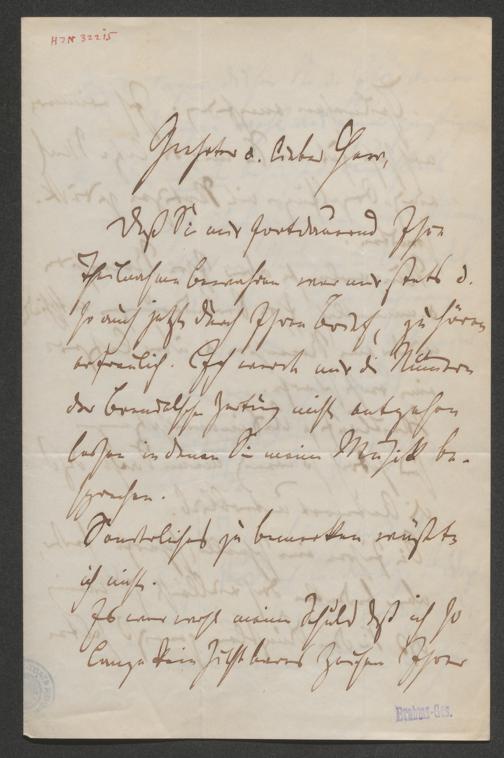 HJN 32215
Geehrter u. lieber Herr,
Daß Sie mir fortdauernd Ihre
Theilnahme bewahren war mir stets u.
so auch jetzt durch Ihren Brief, zu hören
erfreulich. Ich werde mir die Nummern
der Brendelschen Zeitung nicht entgehen
lassen in denen Sie meine Musik be-
sprechen.
Sonderliches zu bemerken wüßte
ich nicht.
Es war wohl meine Schuld daß ich so
lange kein sichtbares Zeichen Ihrer
Brahms-Ges.